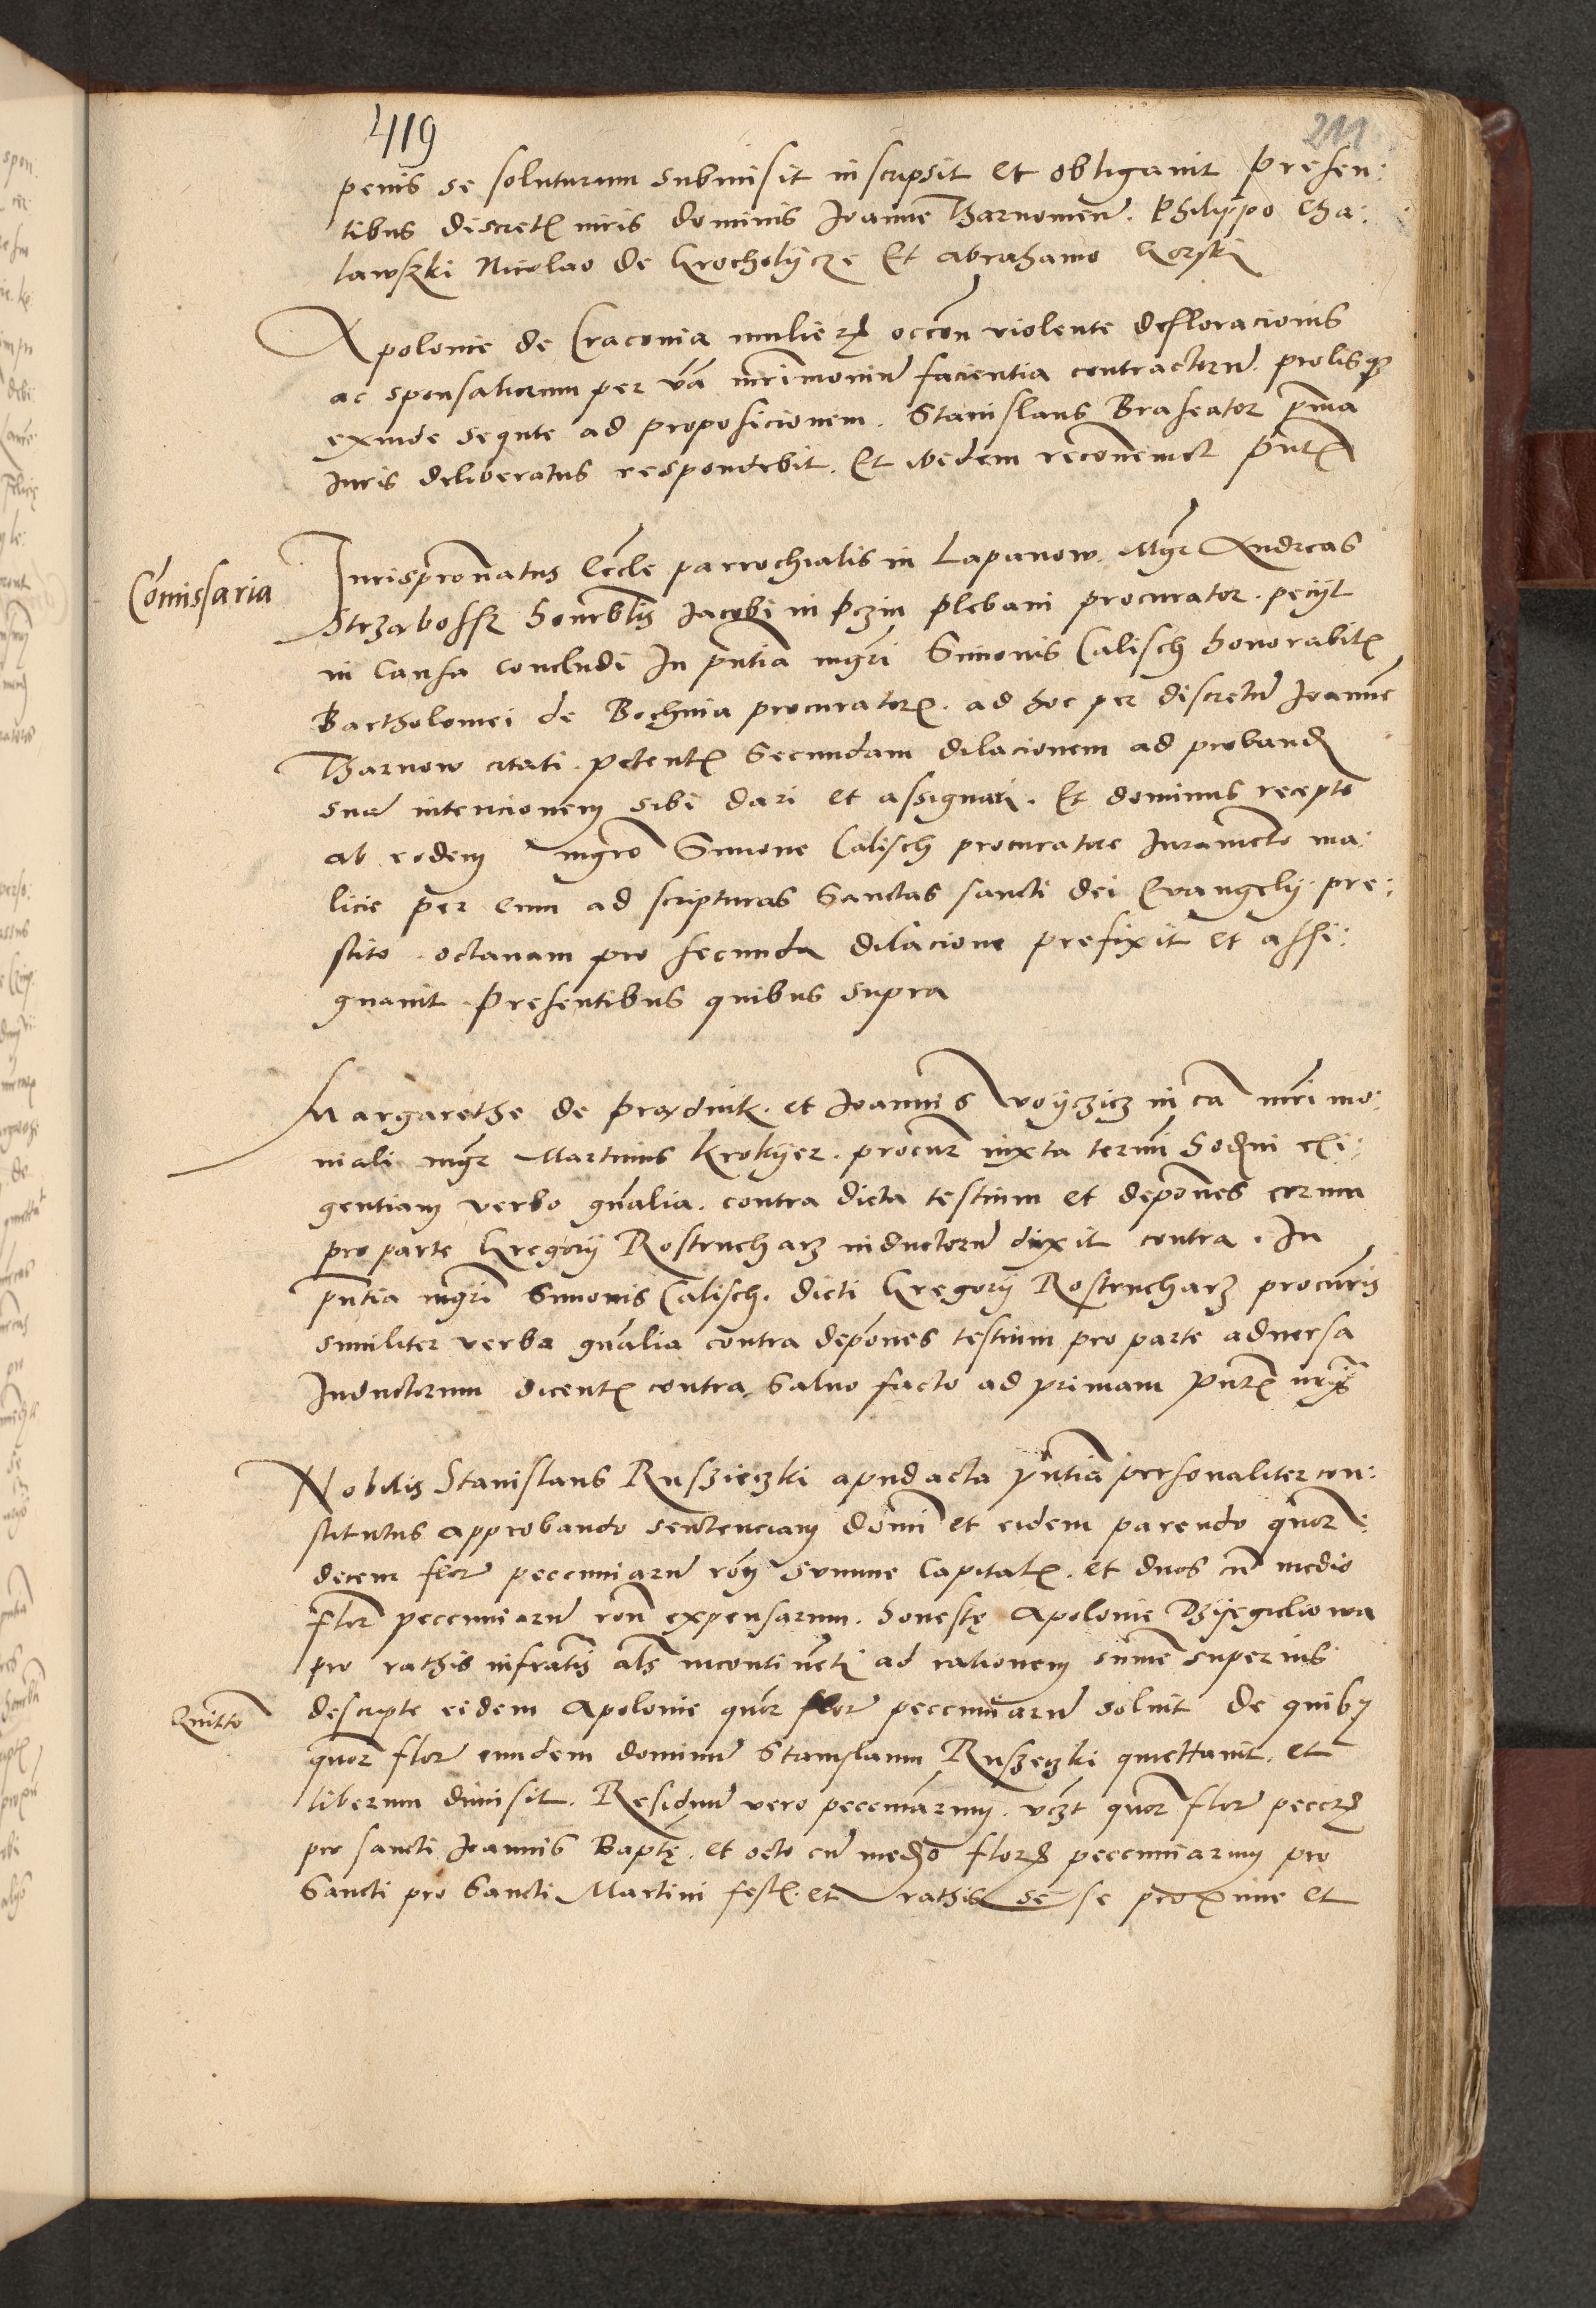 419
211
penis se soluturum submisit inscripsit et obligavit presen:
tibus discretꝭ viris dominis Joanne Tharnowem̄. Philippo Cha:
lawszki Nicolao de Krocholÿcze Et abrahamo Gorski
Apolonie de Cracovia mulierꝭ occōn violente defloracionis
ac sponsaliorum per v̄ba mr̄imoniū facientia contractorū. prolisqꝫ
exinde sequte ad proposicionem. Stanislaus Braseator prīma
Iuris deliberatus respondebit. Et ibidem reconveniet pn̄tꝭ
Comissaria
Jurisprōnatus Ecc̄le parrochialis in Lapanow. Mgr̄ Andreas
Strzabossz honorb̄lis Jacobi in Pczin plebani procurator. pecÿt
in Causa concludi In pn̄tia mgr̄i Simonis Calisch honorabilꝭ
Bartholomei de Bochnia procuratorꝭ. ad hoc per discretū Joannē
Tharnow citati. petentꝭ Secundam dilacionem ad proband̄
suā intencionem sibi dari et assignari. Et dominus recepto
ab eodem mgrō Simone Calisch procuratore Iuramēto ma:
licie per eum ad scripturas Sanctas sancti dei Evangelÿ pre:
stito. octavam pro secunda dilacione prefixit et assi:
gnavit. Presentibus quibus supra
Margarethe de Prąrdnik. et Joannis Voÿczicz in cā mr̄imo:
niali mgr̄ Martinus Krokÿer. procur̄ iuxta termī hodiēni exi:
gentiam verbo gn̄alia. contra dicta testium et depōnes eorum
pro parte Gregorÿ Rostrucharz inductorū dixit contra. In
pn̄tia mgr̄i Simonis Calisch. dicti Gregorÿ Rostrucharz procur̄is
similiter verba gn̄alia contra depōnes testium pro parte adversa
Inductorum dicentꝭ contra, Salvo facto ad primam pn̄tꝭ
Nobilis Stanislaus Ruszieczki apud acta pn̄tia personaliter con:
stitutus approbando sentenciam domī et eidem parendo quor̄:
decem flor̄ pecuniarū rōn̄ summe Capitalꝭ. et duos cū medio
flor̄ pecuniarū rōn̄ expensarum. honestę Apolonie Dzÿęgielowa
pro rathis infrat̄is al̄s incontinētī ad rationem summe superius
Quitto
descripte eidem Apolonie quor̄ flor̄ pecuniarū solvit De quibꝫ
quor̄ flor̄ eundem dominū Stanislaum Ruszeczki quiettavit, et
liberum dimisit. Residuū vero pecuniārum. vcz̄t quor̄ flor̄ pecc̄rꝭ
pro sancti Joannis Baptę. et octo cū medio florꝭ pecuniarum pro
Sancti pro Sancti Martini festꝭ. et rathis se se proxime et